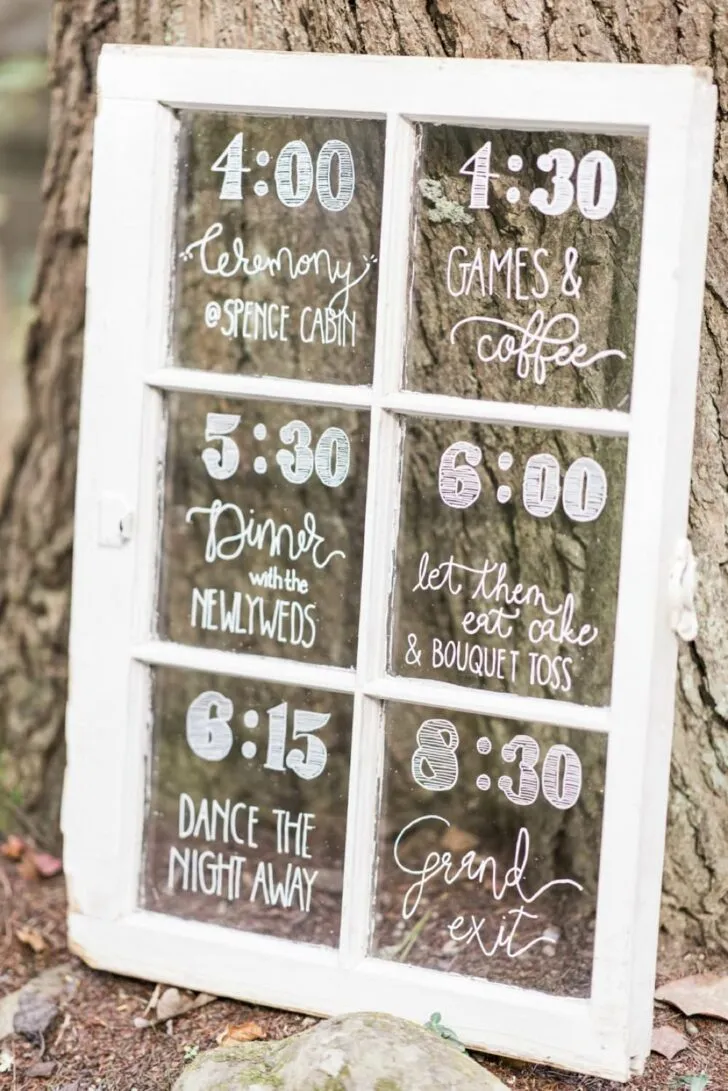 4:00
Ceremony
@SPENCE CABIN
4:30
GAMES &
coffee
5:30
Dinner
with the
NEWLYWEDS
6:00
let them
eat cake
& BOUQUET TOSS
6:15
DANCE THE
NIGHT AWAY
8:30
Grand
exit